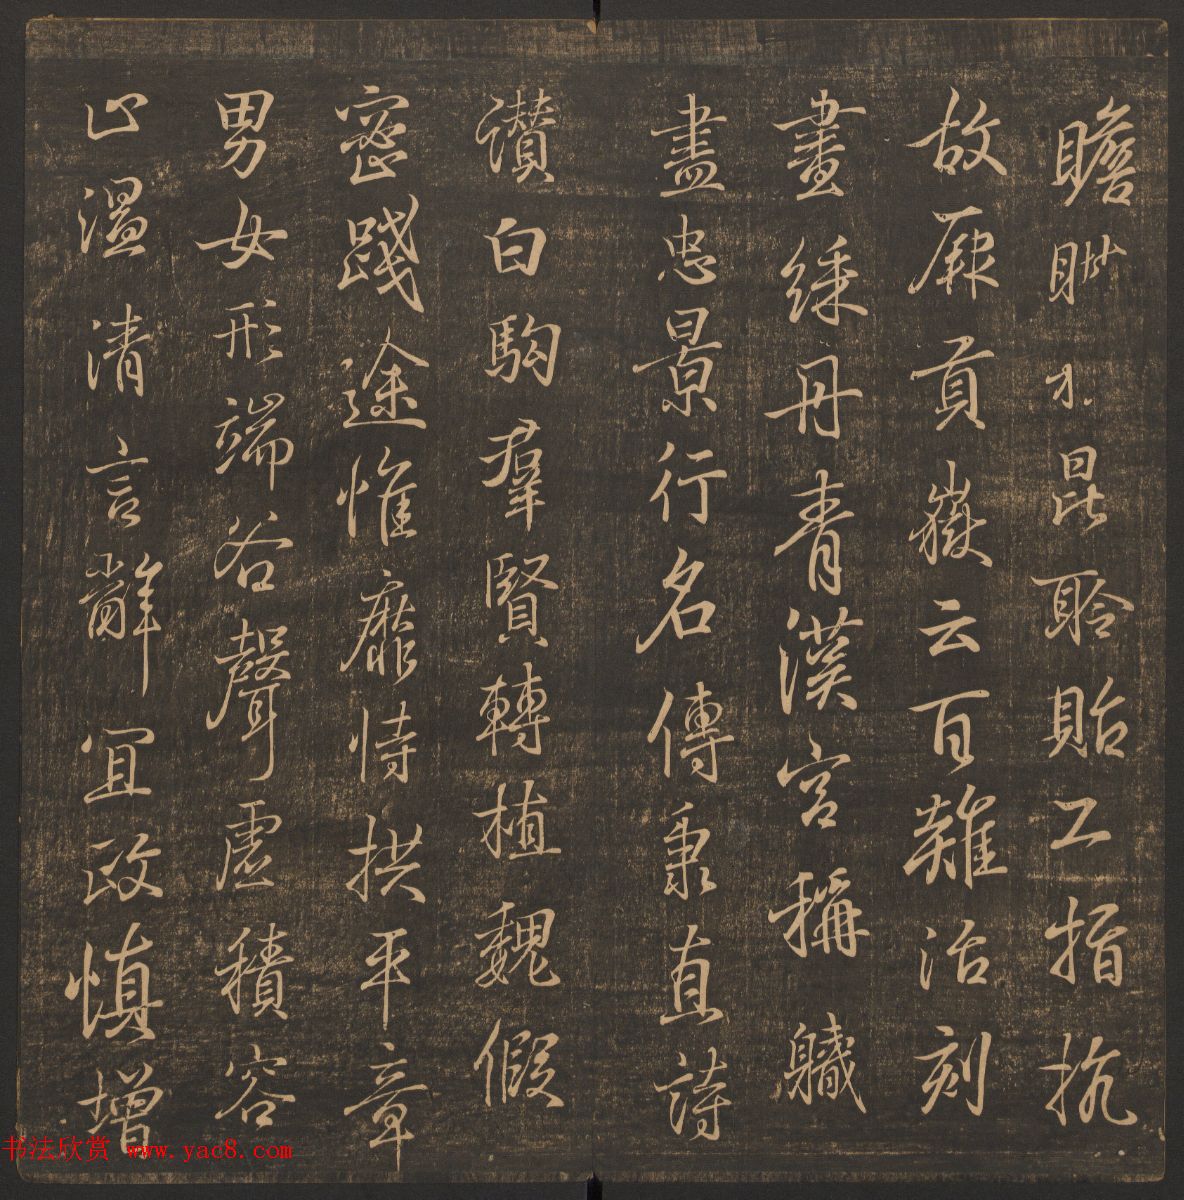 瞻昆聆貽工指抗
故厥貢嶽云百雜活刻
畫綵丹青漢宮稱軄
盡忠景行名傳秉直詩
讚白駒羣賢轉植魏假
密踐途惟靡恃拱平章
男女形端谷聲虛積容
止溫清言辭宜政慎增
书法欣赏 www.yac8.com